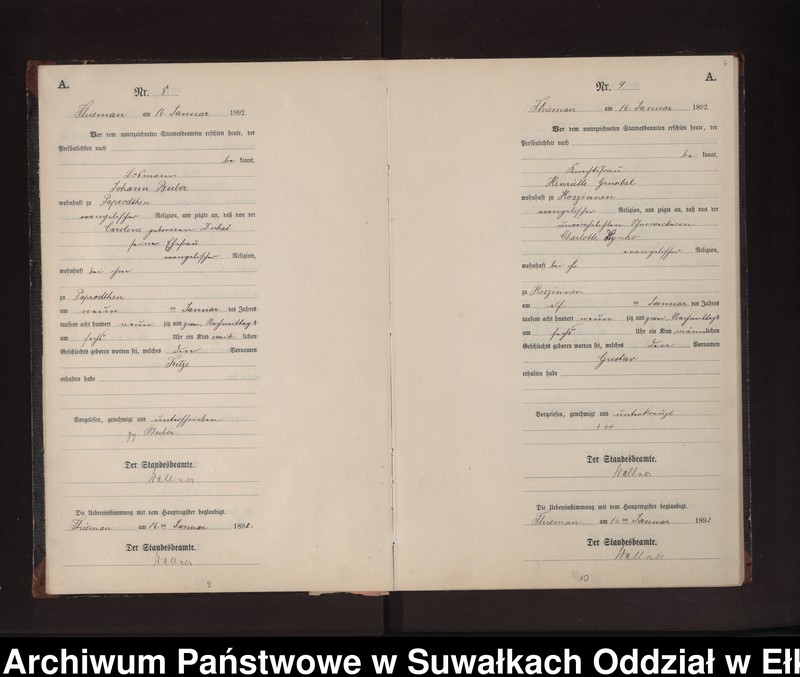 A.
Nr. 8
Thierman am 16 Januar 1892
Vor dem unterzeichneten Standesbeamten erschien heute, der
Persönlichkeit nach
be kannt,
Losmann
Johann
wohnhaft zu Paprodtken
evangelischer Religion, und zeigte an, daß von der
Caroline geborenen
seiner Ehefrau
evangelischer Religion,
wohnhaft bei ihm
zu Paprodtken
am neun ten Januar des Jahres
tausend acht hundert neun zig und zwei Nachmittags
um sechs Uhr ein Kind weib lichen
Geschlechts geboren worden sei, welches den Vornamen
erhalten habe
Vorgelesen, genehmigt und unterschrieben
gz.
Der Standesbeamte.
Wallner
Die Uebereinstimmung mit dem Hauptregister beglaubigt.
Thierman am 16. ten Januar 1892.
Der Standesbeamte.
Wallner
9
A.
Nr. 9
Thierman am 16 Januar 1892
Vor dem unterzeichneten Standesbeamten erschien heute, der
Persönlichkeit nach
be kannt,
Knechtsfrau
Henriette
wohnhaft zu Roszinnen
evangelischer Religion, und zeigte an, daß von der
unverehelichten
Charlotte
evangelischer Religion,
wohnhaft bei ihr
zu Roszinnen
am elf ten Januar des Jahres
tausend acht hundert neun zig und zwei Nachmittags
um sechs Uhr ein Kind männ lichen
Geschlechts geboren worden sei, welches den Vornamen
Gustav
erhalten habe
Vorgelesen, genehmigt und unterkreuzt
+++
Der Standesbeamte.
Wallner
Die Uebereinstimmung mit dem Hauptregister beglaubigt.
Thierman am 16 ten Januar 1892.
Der Standesbeamte.
Wallner
10
Archiwum Państwowe w Suwałkach Oddział w Ełk